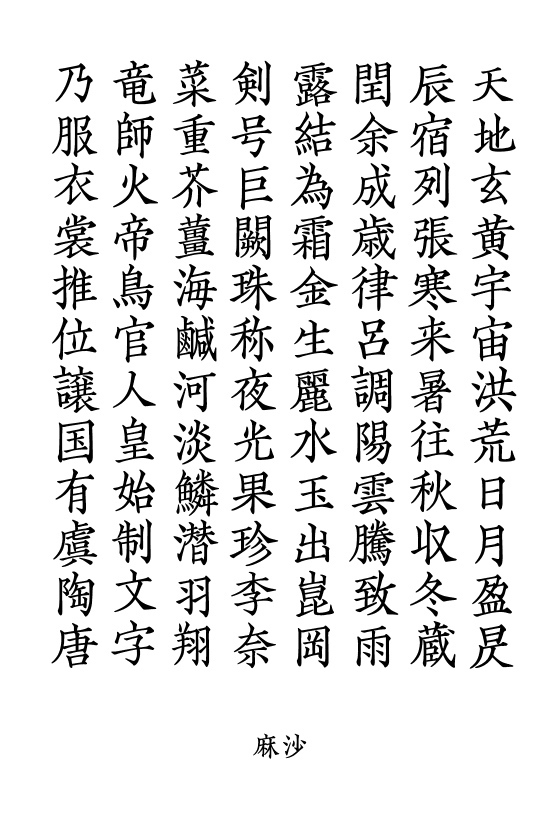 天地玄黄宇宙洪荒日月盈昃
辰宿列張寒来暑往秋収冬蔵
閏余成歳律呂調陽雲騰致雨
露結為霜金生麗水玉出崑岡
剣号巨闕珠称夜光果珍李奈
菜重芥薑海鹹河淡鱗潜羽翔
竜師火帝鳥官人皇始制文字
乃服衣裳推位譲国有虞陶唐
麻沙